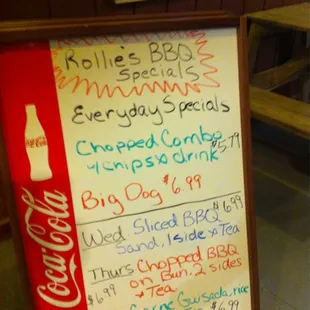 Rollie's BBQ
Specials
Everyday Specials
Chopped Combo
w/chips & drink $5.79
Big Dog $6.99
Wed. Sliced BBQ $6.99
Sand, 1 side & Tea
Thurs Chopped BBQ
on Bun, 2 sides
$6.99 & Tea
Carne Guisada, rice
$6.99
Coca-Cola